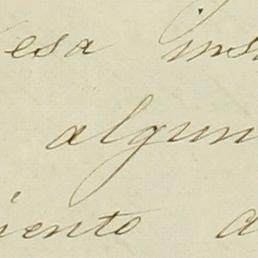 esa ins
algun
iento a